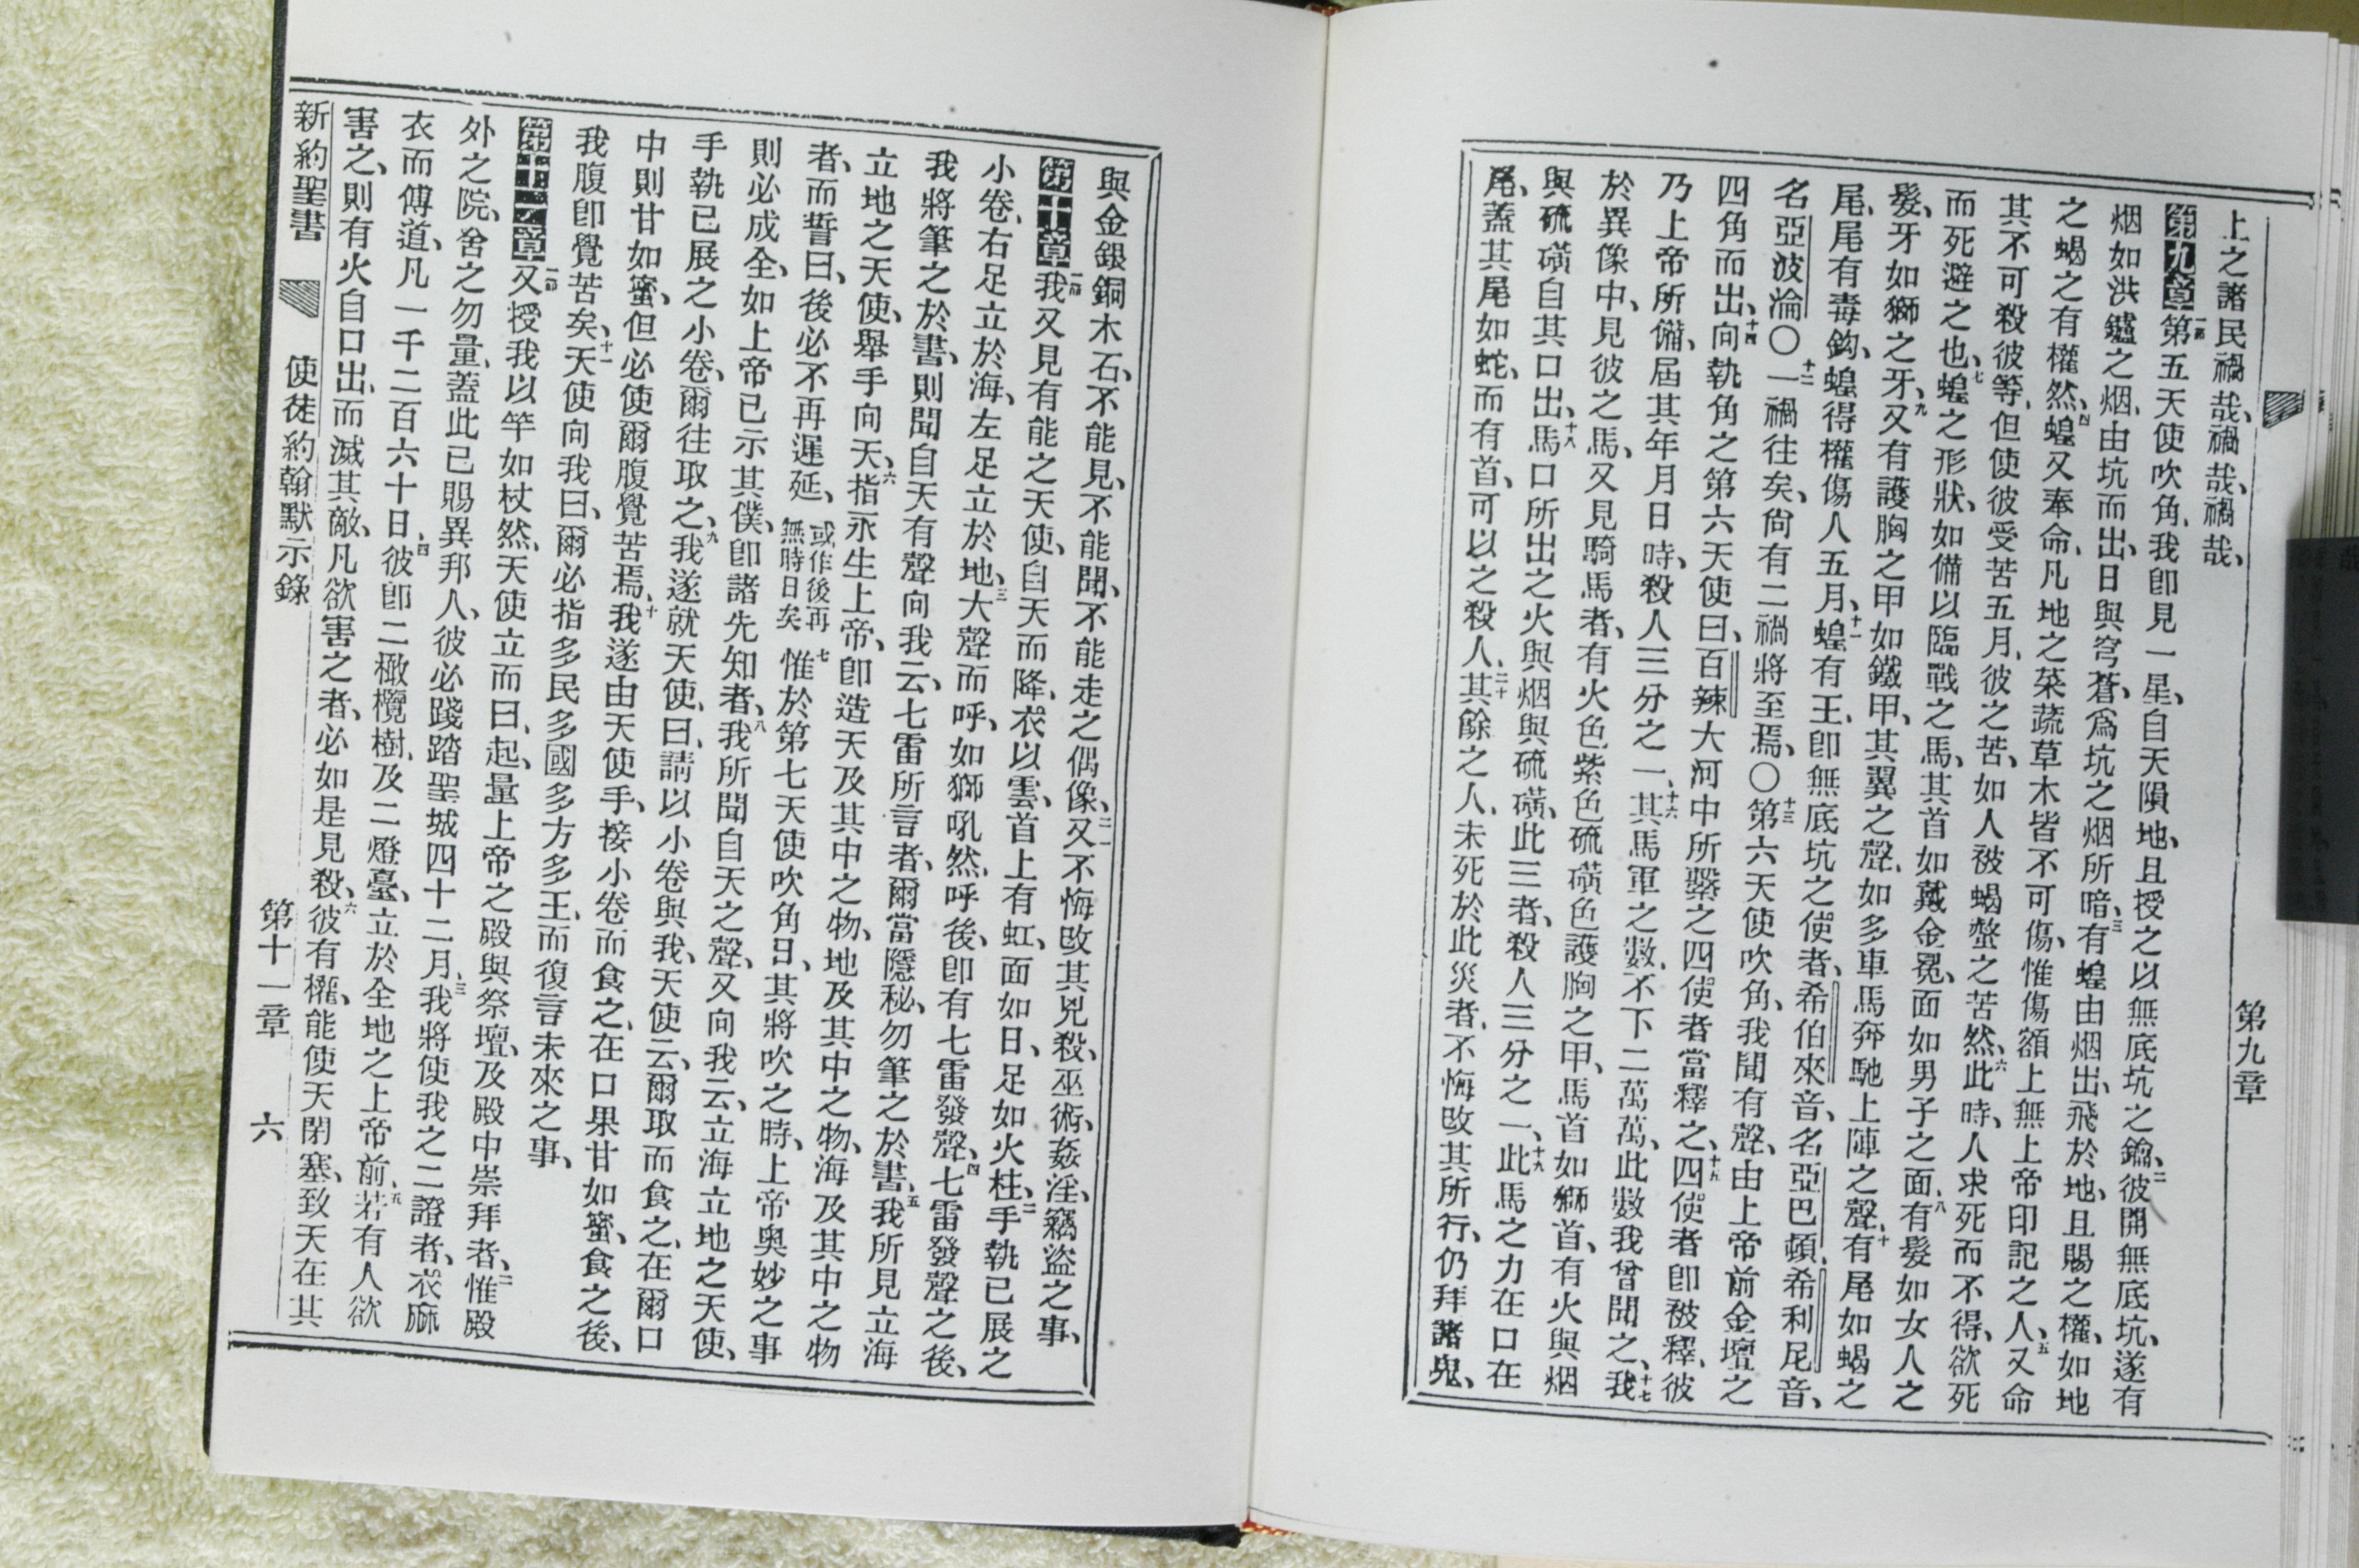 第九章
上之諸民禍哉、禍哉、禍哉、
第九章 一節第五天使吹角、我卽見一星、自天隕地、且授之以無底坑之鑰、二彼開無底坑、遂有
烟如洪鑪之烟、由坑而出、日與穹蒼、爲坑之烟所暗、三有蝗由烟出、飛於地、且賜之權、如地
之蝎之有權然、四蝗又奉命、凡地之菜蔬草木皆不可傷、惟傷額上無上帝印記之人、五又命
其不可殺彼等、但使彼受苦五月、彼之苦、如人被蝎螫之苦然、六此時、人求死而不得、欲死
而死避之也、七蝗之形狀、如備以臨戰之馬、其首如戴金冕、面如男子之面、八有髮如女人之
髮、牙如獅之牙、九又有護胸之甲如鐵甲、其翼之聲、如多車馬奔馳上陣之聲、十有尾如蝎之
尾、尾有毒鈎、蝗得權傷人五月、十一蝗有王、卽無底坑之使者、希伯來音、名亞巴頓、希利尼音、
名亞波淪〇十二一禍往矣、尙有二禍將至焉、〇十三第六天使吹角、我聞有聲、由上帝前金壇之
四角而出、十四向執角之第六天使曰、百辣大河中所繫之四使者當釋之、十五四使者卽被釋、彼
乃上帝所備、屆其年月日時、殺人三分之一、十六其馬軍之數、不下二萬萬、此數我曾聞之、十七我
於異像中、見彼之馬、又見騎馬者、有火色紫色硫磺色護胸之甲、馬首如獅首、有火與烟
與硫磺自其口出、十八馬口所出之火與烟與硫磺、此三者、殺人三分之一、十九此馬之力在口在
尾、蓋其尾如蛇、而有首、可以之殺人、二十其餘之人、未死於此災者、不悔改其所行、仍拜諸鬼、
與金銀銅木石、不能見、不能聞、不能走之偶像、二一又不悔改其兇殺、巫術、姦淫、竊盜之事、
第十章 一節我又見有能之天使、自天而降、衣以雲、首上有虹、面如日、足如火柱、二手執已展之
小卷、右足立於海、左足立於地、三大聲而呼、如獅吼然、呼後、卽有七雷發聲、四七雷發聲之後、
我將筆之於書、則聞自天有聲向我云、七雷所言者、爾當隱秘、勿筆之於書、五我所見立海
立地之天使、舉手向天、六指永生上帝、卽造天及其中之物、地及其中之物、海及其中之物
者、而誓曰、後必不再遲延、或作後再無時日矣 七惟於第七天使吹角日、其將吹之時、上帝奧妙之事
則必成全、如上帝已示其僕、卽諸先知者、八我所聞自天之聲、又向我云、立海立地之天使、
手執已展之小卷、爾往取之、九我遂就天使、曰、請以小卷與我、天使云、爾取而食之、在爾口
中則甘如蜜、但必使爾腹覺苦焉、十我遂由天使手、接小卷而食之、在口果甘如蜜、食之後、
我腹卽覺苦矣、十一天使向我曰、爾必指多民多國多方多王、而復言未來之事、
第十一章 一節又授我以竿如杖然、天使立而曰、起、量上帝之殿與祭壇、及殿中崇拜者、二惟殿
外之院、舍之勿量、蓋此已賜異邦人、彼必踐踏聖城四十二月、三我將使我之二證者、衣麻
衣而傅道、凡一千二百六十日、四彼卽二橄欖樹、及二燈臺、立於全地之上帝前、五若有人欲
害之、則有火自口出、而滅其敵、凡欲害之者、必如是見殺、六彼有權、能使天閉塞、致天在其
新約聖書 使徒約翰默示錄 第十一章 六